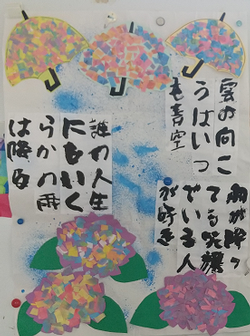 雲の向こ
うはいつ
も青空
雨が降っ
ても笑顔
でいる人
が好き
誰の人生
にもいく
らかの雨
は降る